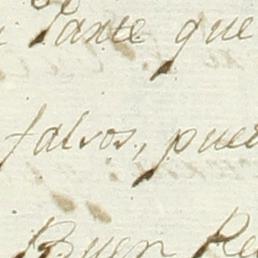 Parte que
falsos, pue
Buen Re